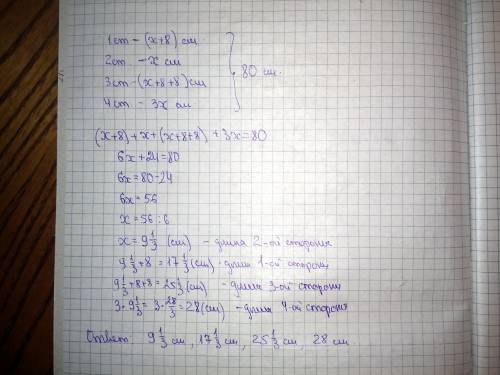 1 ст – (x+8) см
2 ст – x см
3 ст – (x+8+8) см
4 ст – 3x см
80 см.
(x+8)+x+(x+8+8)+3x=80
6x+24=80
6x=80-24
6x=56
x=56:6
x=9 1/3 (см) – длина 2-ой стороны
9 1/3+8=17 1/3 (см) - длина 1-ой стороны
9 1/3+8+8=25 1/3 (см) – длина 3-ой стороны
3·9 1/3=3·28/3=28(см) – длина 4-ой стороны
Ответ: 9 1/3 см, 17 1/3 см, 25 1/3 см, 28 см.